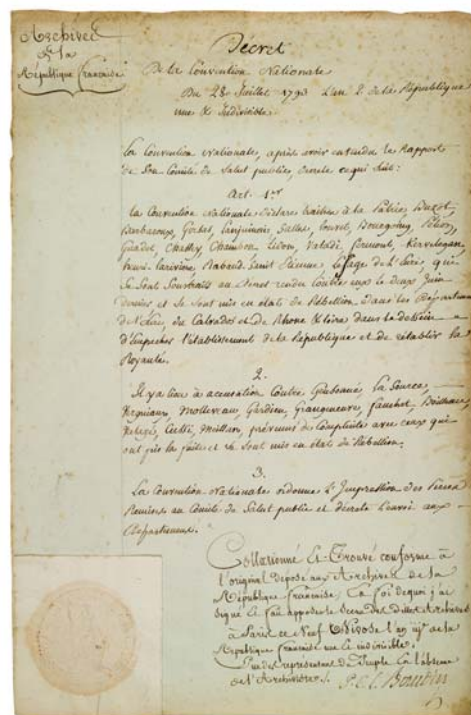 Archives
de la
République française
Décret
De la Convention Nationale
Du 28 Juillet 1793 L'an 2 de la République
une & Indivisible.
La Convention Nationale, après avoir entendu le Rapport
de Son Comité de Salut public, decrete ce qui Suit:
Art. 1er
La Convention Nationale déclare traitres à la Patrie, Buzot,
Barbaroux, Gorsas, Lanjuinais, Salles, Louvet, Bergoeing, Pétion,
Guadet, Chasset, Chambon, Lidon, Valadi, fermont, Kervelegan,
Henri-Larivière, Rabaud-Saint Etienne, Le Sage de l'Eure, qui
Se Sont Soustraits au Decret rendu Contre eux le deux Juin
dernier et Se Sont mis en état de Rébellion dans les Départemens
de l'Eure, du Calvados et de Rhone & Loire, dans le dessein
d'empecher l'établissement de la République et de rétablir la
Royauté.
2.
Il y a lieu à accusation Contre Gensonné, La Source,
Vergniaux, Mollevaux, Gardien, Grangeneuve, fauchet, Boilleau,
Valazé, Cussi, Meillan, prévenus de Complicité avec ceux qui
ont pris la fuite et se Sont mis en état de Rébellion.
3.
La Convention Nationale ordonne l'Impression des Pieces
Remises au Comité de Salut public et décrete l'envoi aux
Départemens.
Collationné Et Trouvé conforme à
l'original déposé aux Archives de la
République française, En foi de quoi j'ai
signé Et fait apposer le Sceau Des Dittes Archives
à Paris ce Neuf Nivose l'an iije de la
République française une Et indivisible.
representant du Peuple En l'absence
de l'Archiviste.